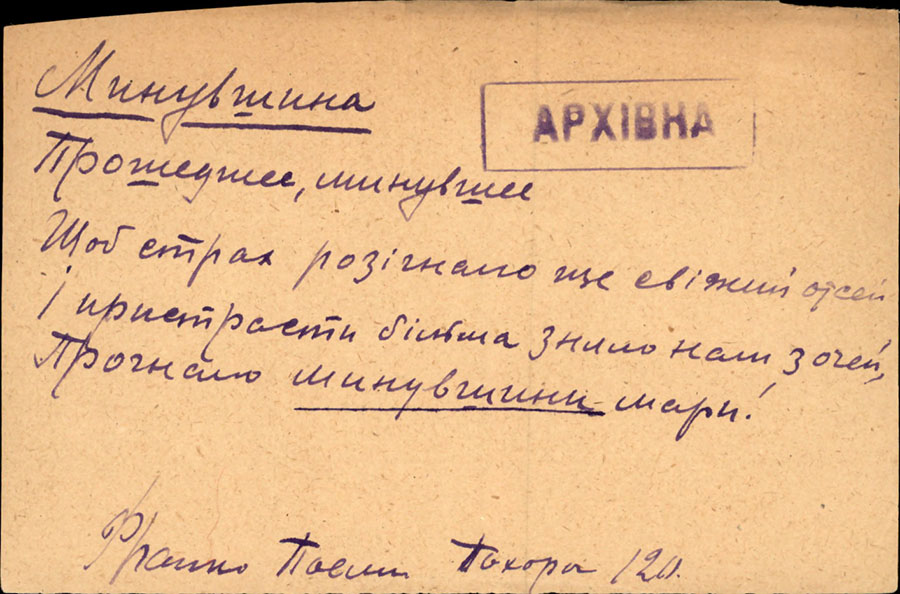 Минувшина
АРХІВНА
Прошедшее, минувшее
Щоб страх розігнало ще свіжий отсей
І пристрасти більма зняло нам з очей,
Прогнало минувшини мари!
Франко Поеми Похорон 120.